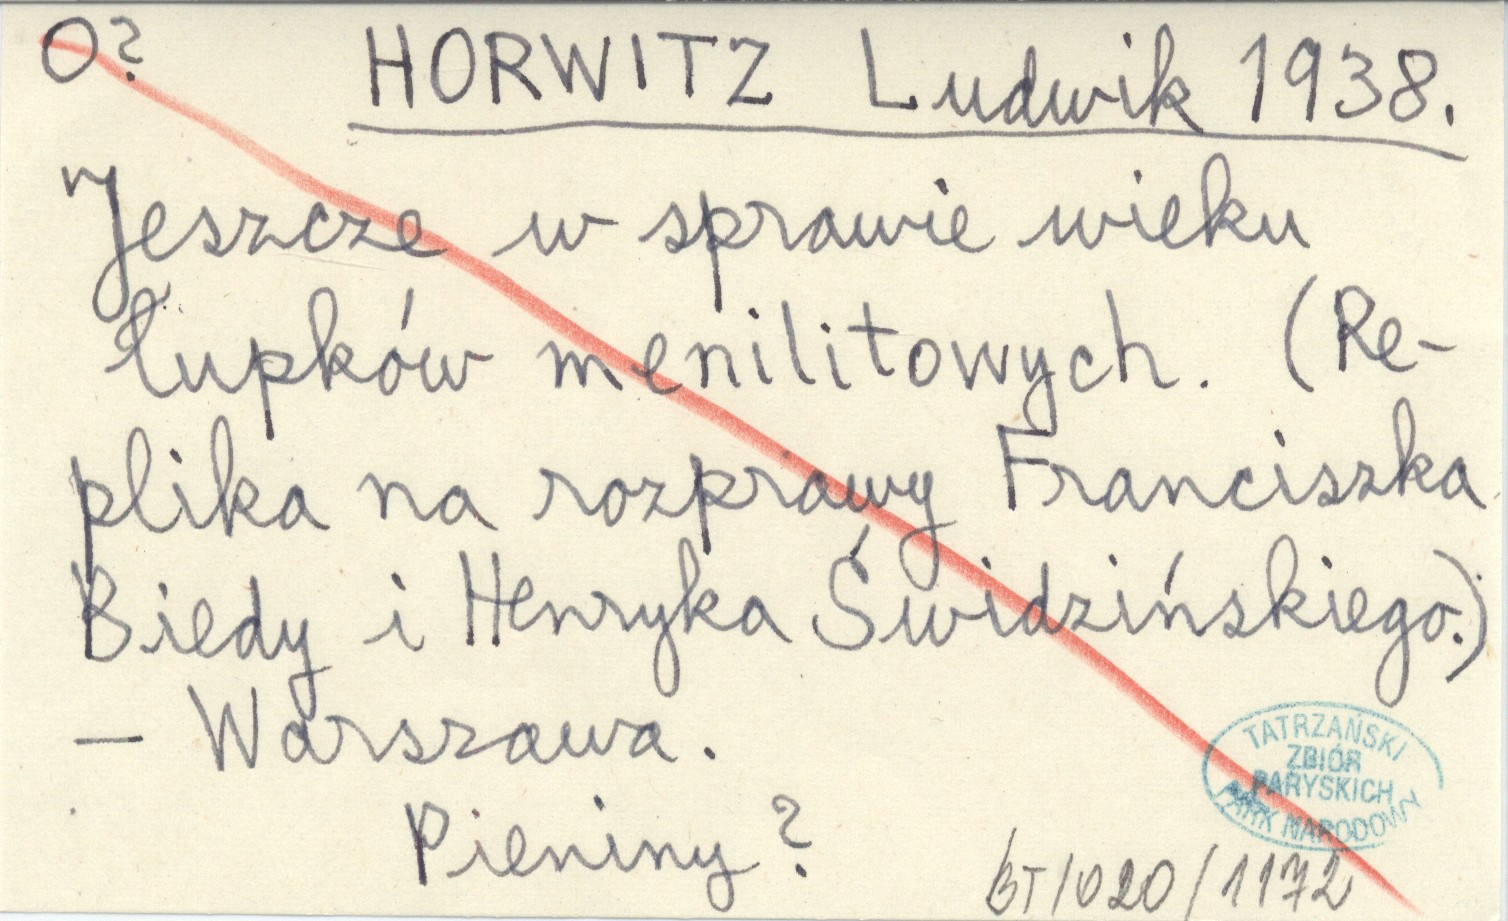 O?
HORWITZ Ludwik 1938.
Jeszcze w sprawie wieku
łupków menilitowych. (Re-
plika na rozprawy Franciszka
Biedy i Henryka Świdzińskiego.)
- Warszawa.
Pieniny?
TATRZAŃSKI
ZBIÓR
PARYSKICH
PARK NARODOWY
BT/020/1172